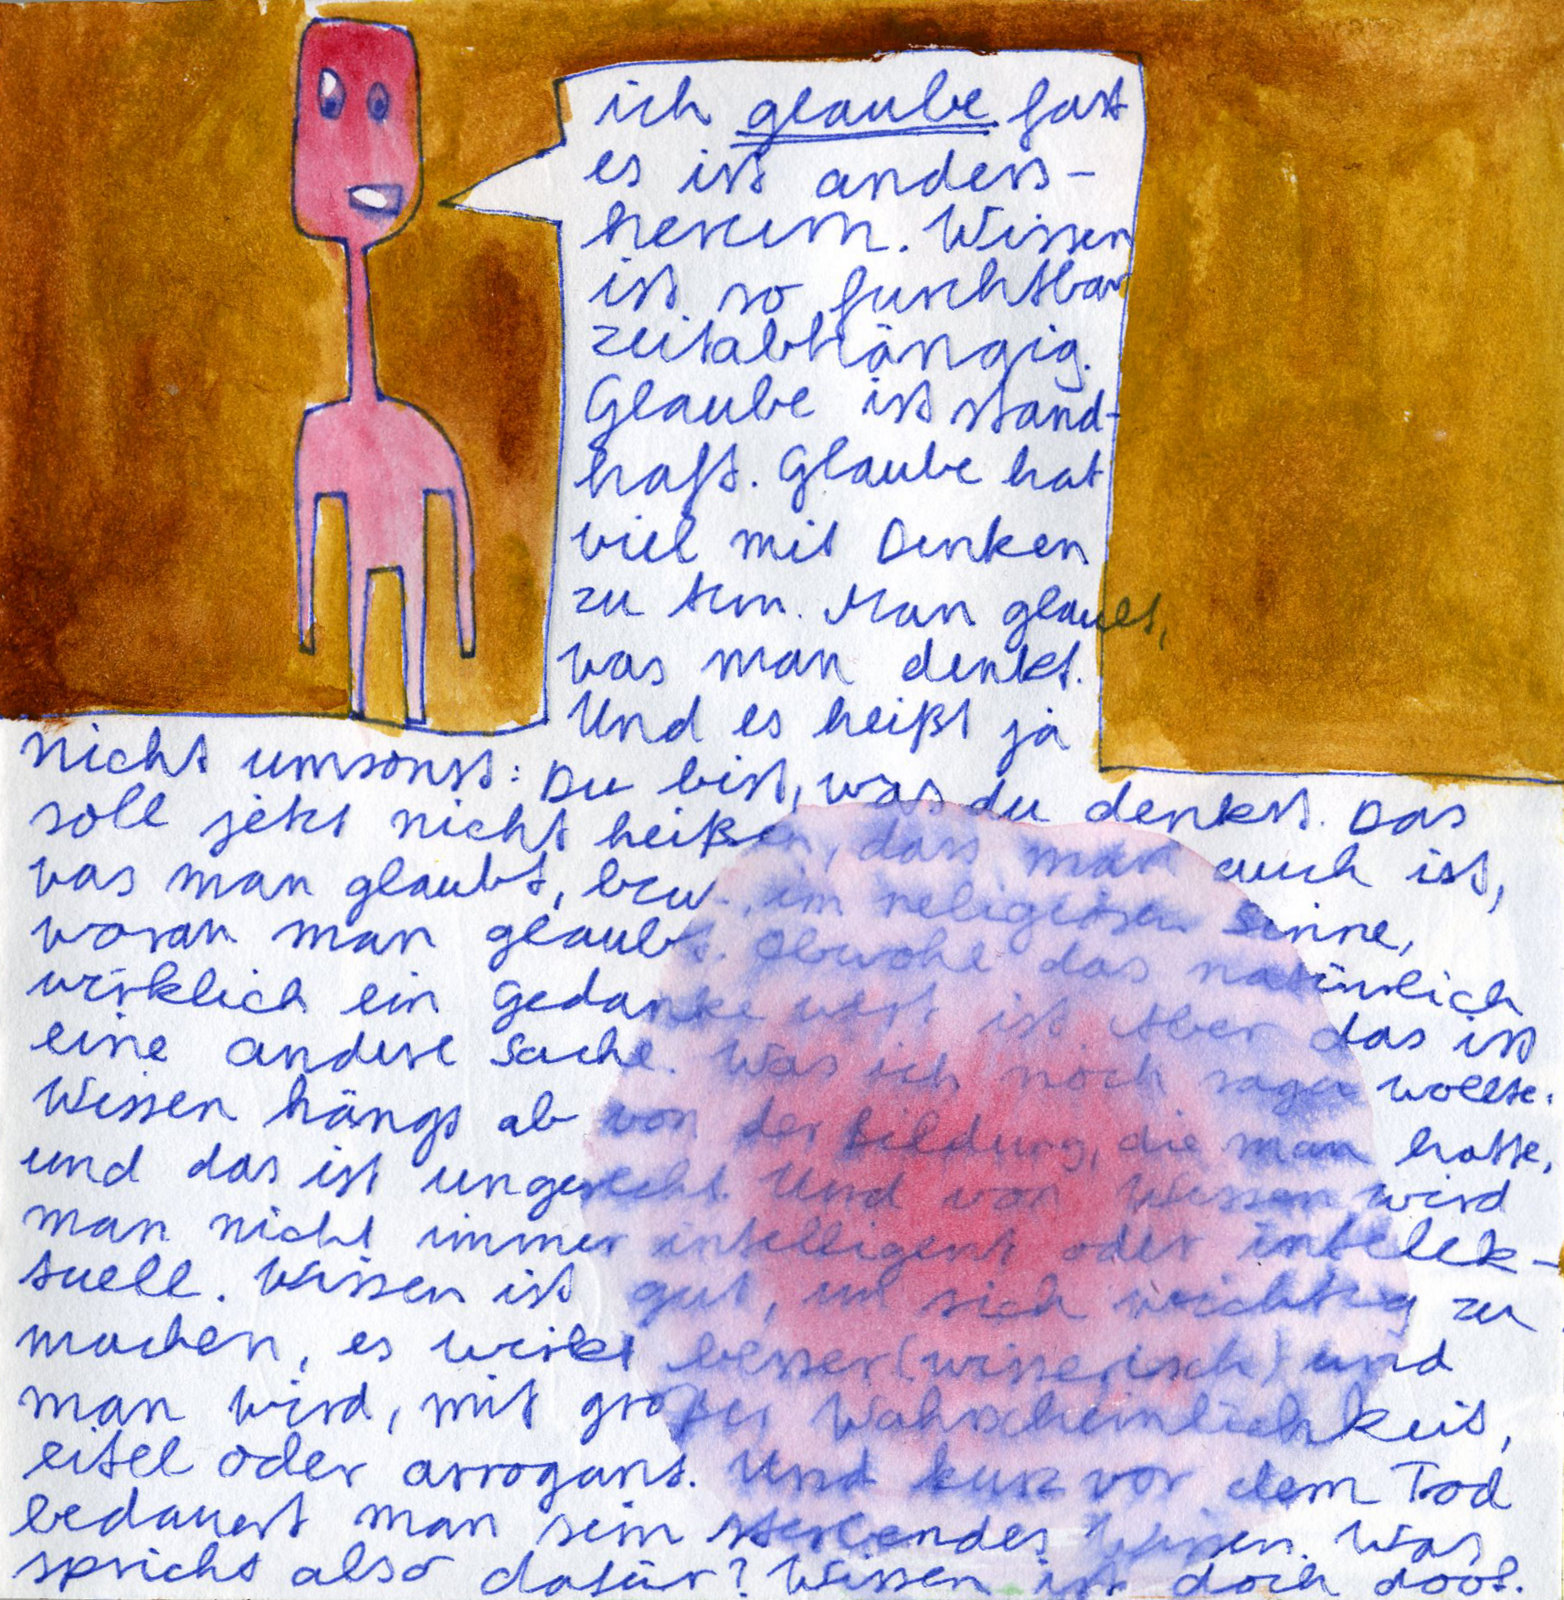 ich glaube fast
es ist anders-
herum. Wissen
ist so furchtbar
zeitabhängig.
Glaube ist stand-
haft. Glaube hat
viel mit Denken
zu tun. Man glaubt,
was man denkt.
Und es heißt ja
nicht umsonst: Du bist, was du denkst. Das
soll jetzt nicht heißen, dass man auch ist,
was man glaubt, bzw. im religiösen Sinne,
woran man glaubt. Obwohl das natürlich
wirklich ein Gedanke wert ist. Aber das ist
eine andere Sache. Was ich noch sagen wollte:
Wissen hängt ab von der Bildung, die man hatte,
und das ist ungerecht. Und von Wissen wird
man nicht immer intelligent oder intelek-
tuell. Wissen ist gut, um sich wichtig zu
machen, es wirkt besser(wisserisch) und
man wird, mit großer Wahrscheinlichkeit,
eitel oder arrogant. Und kurz vor dem Tod
bedauert man sein sterbendes Wissen. Was
spricht also dafür? Wissen ist doch doof.